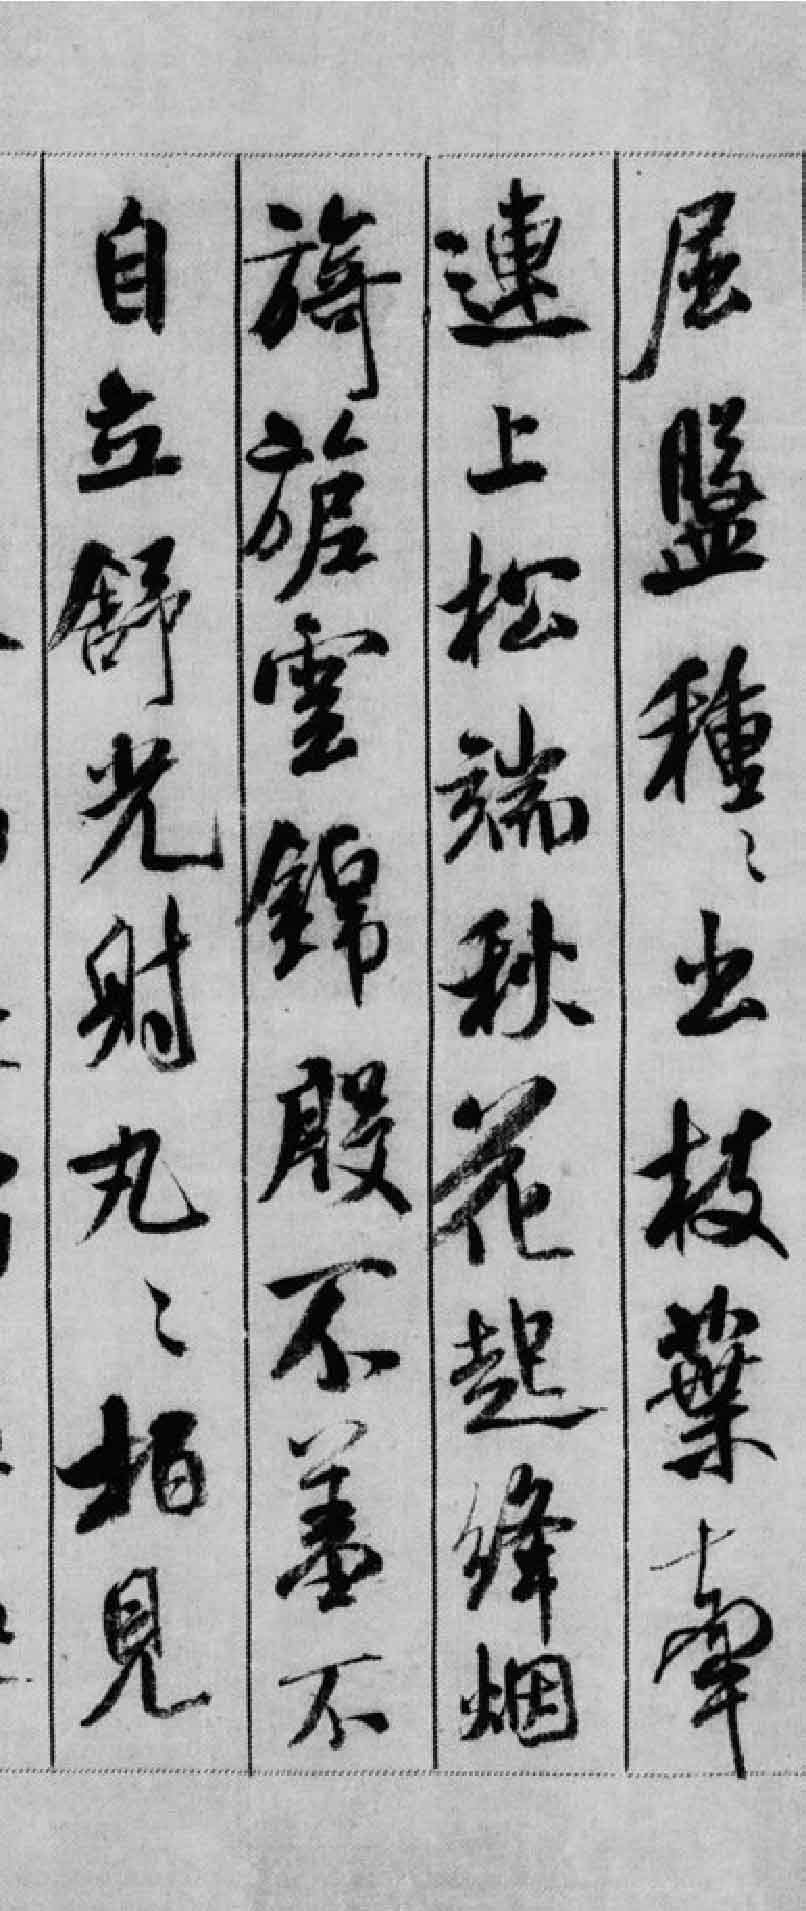 屈盤種〻出枝葉牽
連上松端秋花起絳烟
旖旎雲錦殷不羞不
自立舒光射丸〻柏見